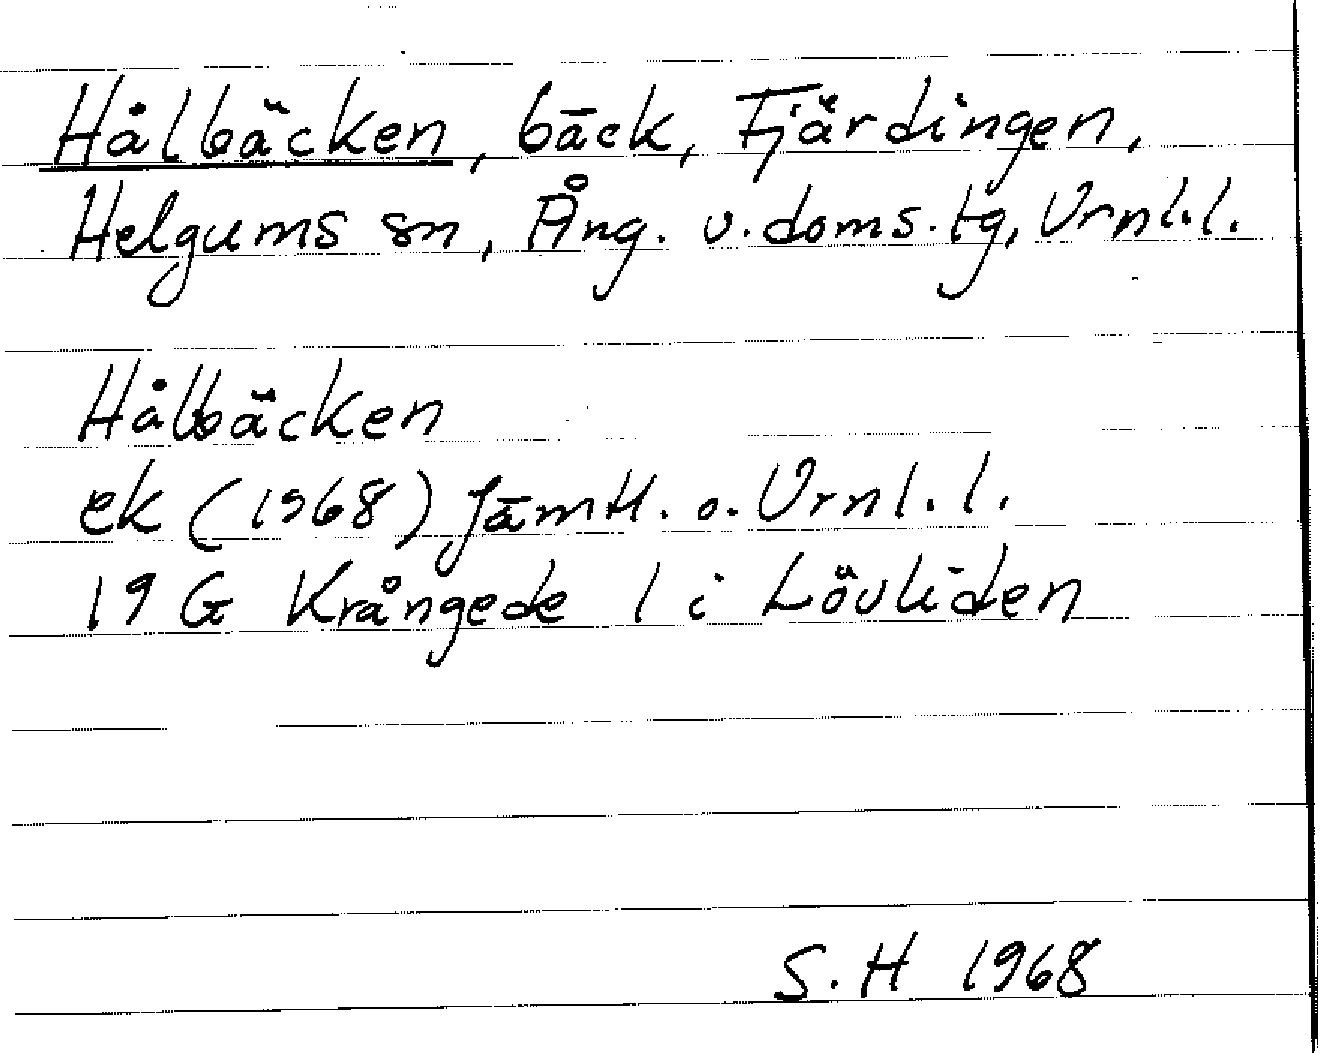 Hålbäcken, bäck, Fjärdingen,
Helgums sn, Ång. v. doms. tg, Vrnl.l.
Hålbäcken
ek (1968) Jämtl. o. Vrnl. l.
19 G Krångede 1 i Lövliden
S. H 1968